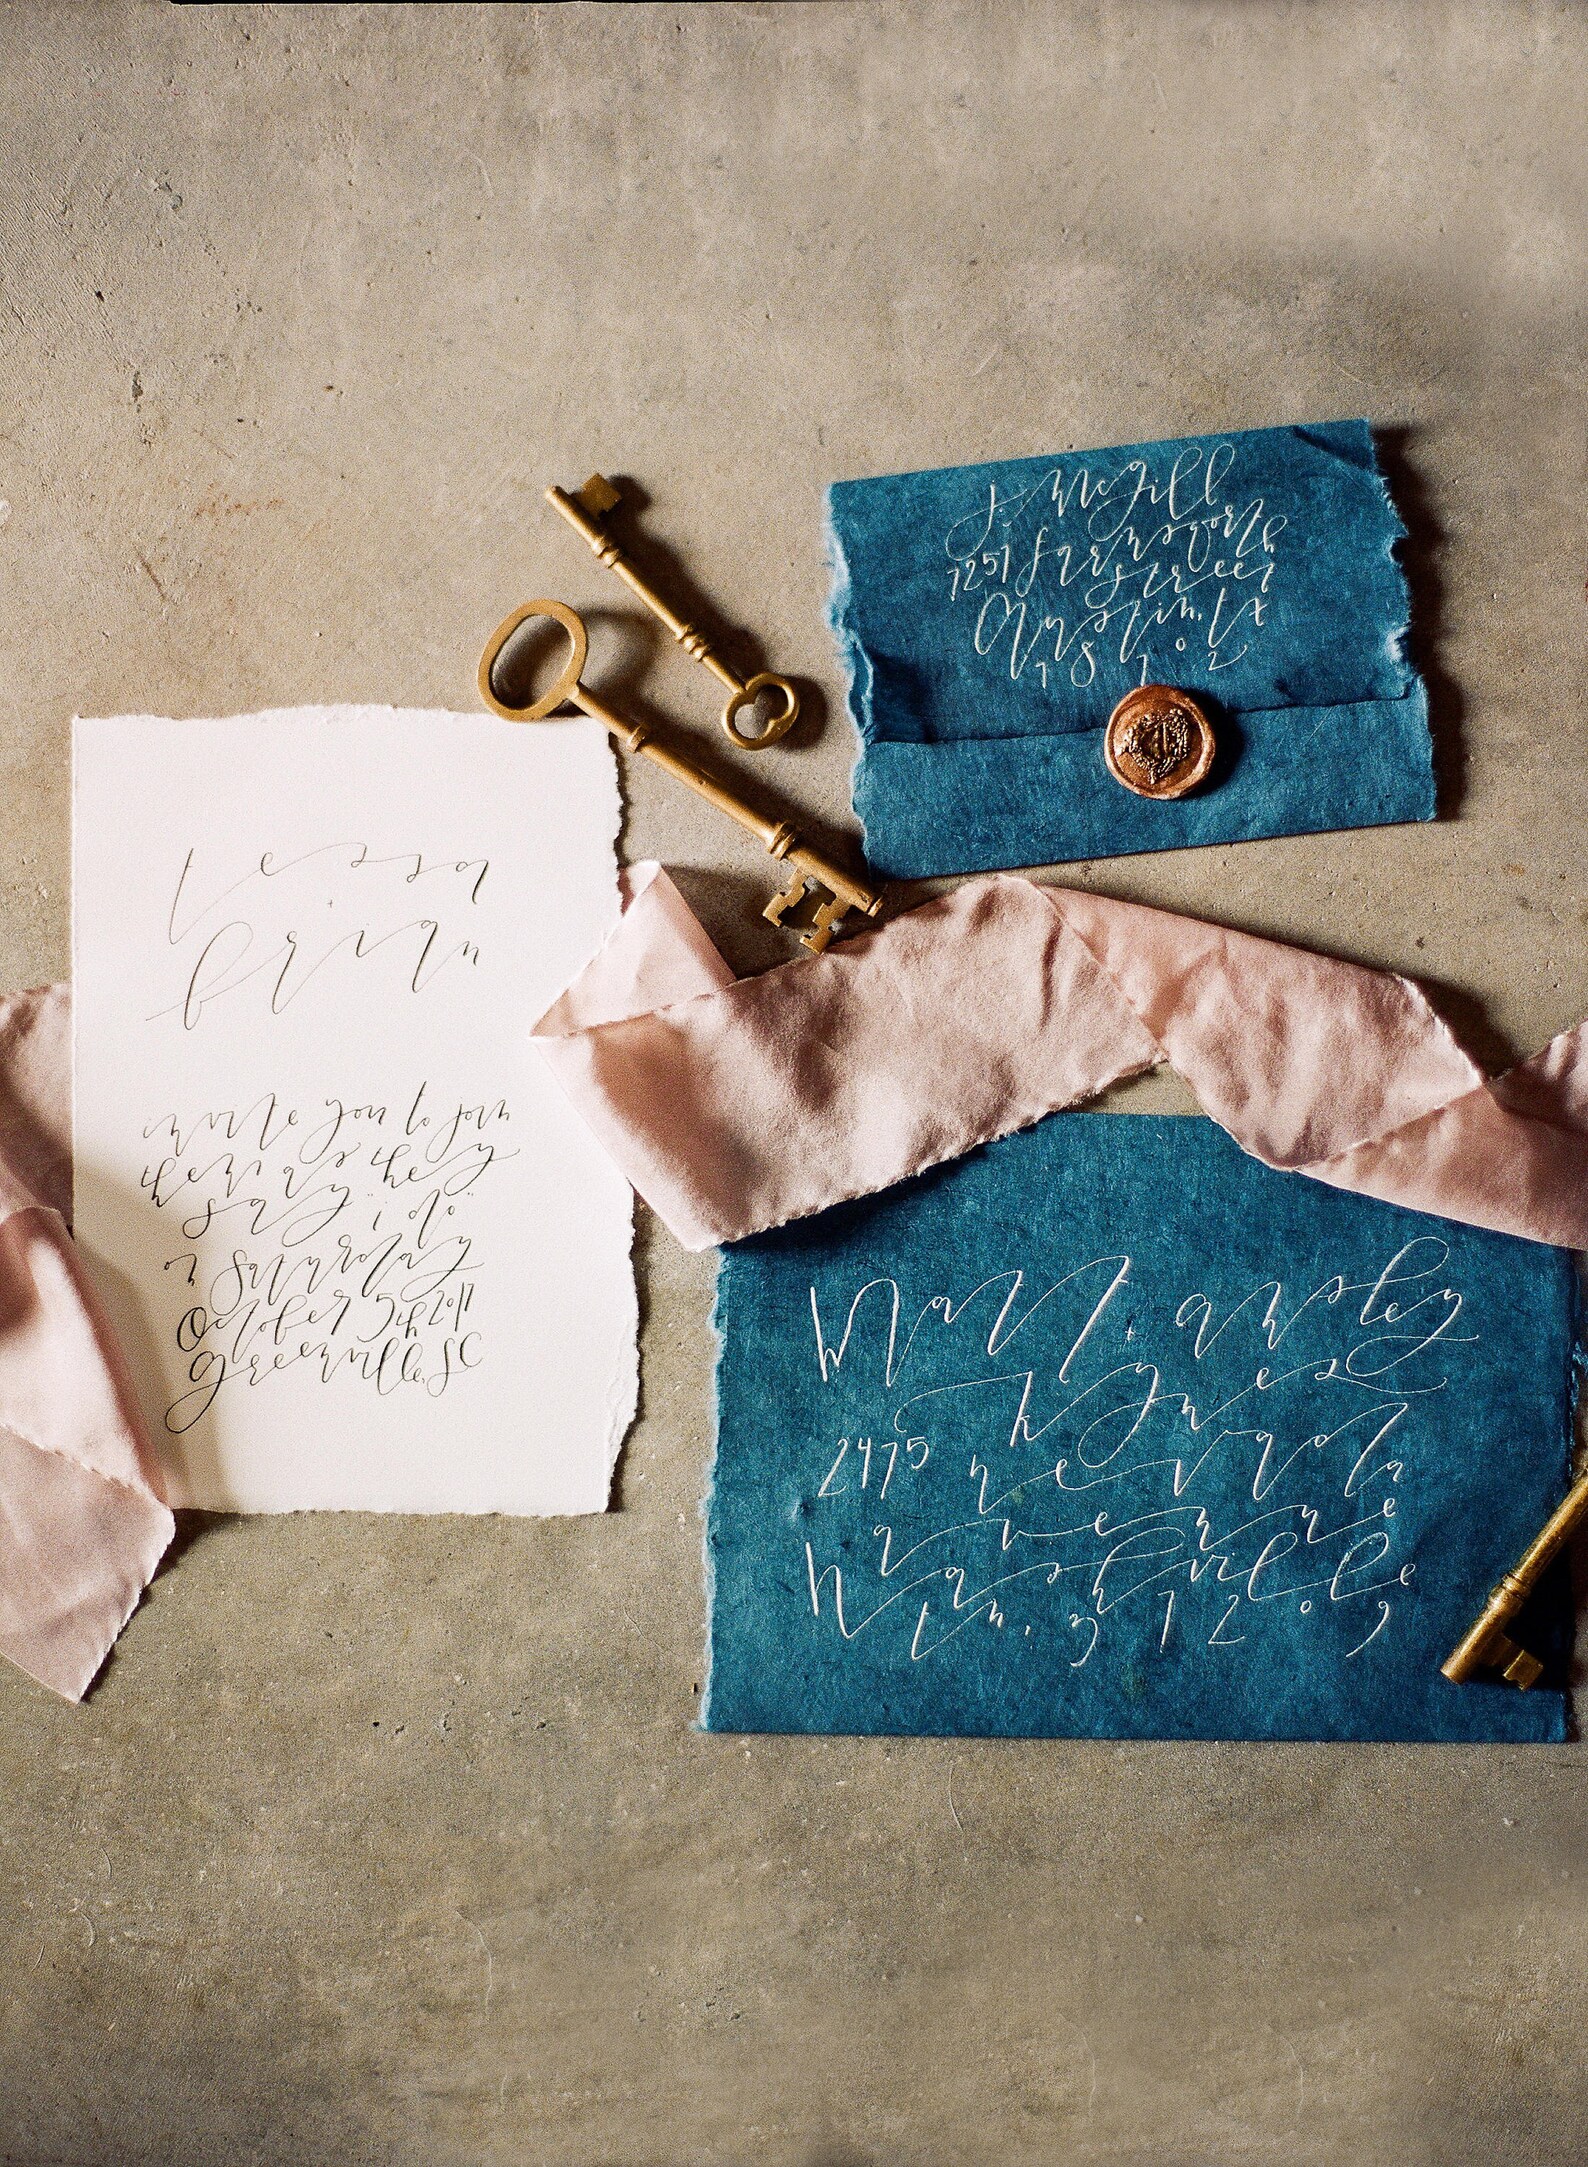 tessa
+
brian
invite you to join
them as they
say "i do"
on saturday
October 5th 2017
Greenville, SC
J. McGill
7257 farnsworth
street
Austin, TX
78702
Matt + ansley
hynes
2475 nevada
avenue
Nashville
tn. 37209